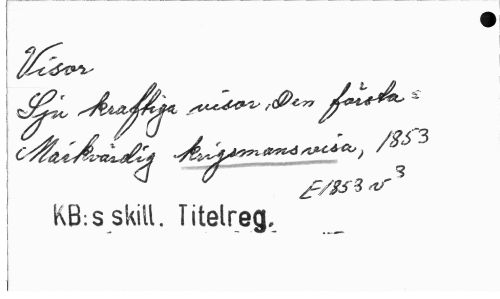 Visor
Sju kraftiga visor. Den första =
Märkvärdig krigsmansvisa, 1853
E1853 v 3
KB:s skill. Titelreg.